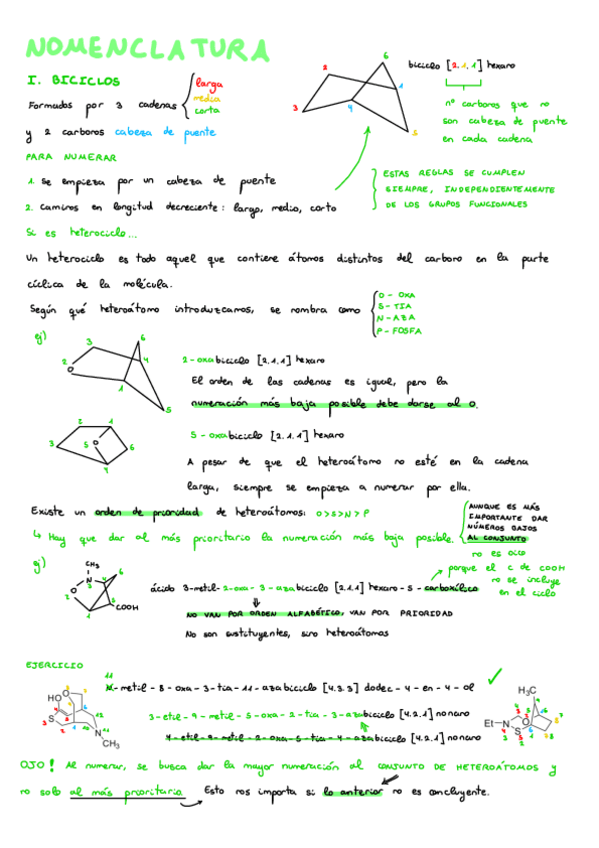 NOMENCLATURA
I. BICICLOS
Formados por 3 cadenas
larga
media
corta
y 2 carbonos cabeza de puente
6
2
1
3
4
5
biciclo [2.1.1] hexano
nº carbonos que no
son cabeza de puente
en cada cadena
PARA NUMERAR
1. Se empieza por un cabeza de puente
2. Caminos en longitud decreciente: largo, medio, corto
ESTAS REGLAS SE CUMPLEN
SIEMPRE, INDEPENDIENTEMENTE
DE LOS GRUPOS FUNCIONALES
Si es heterociclo...
Un heterociclo es todo aquel que contiene átomos distintos del carbono en la parte
cíclica de la molécula.
Según qué heteroátomo introduzcamos, se nombra como
O - OXA
S - TIA
N - AZA
P - FOSFA
ej)
3
6
2
O
4
1
5
2-oxabiciclo [2.1.1] hexano
El orden de las cadenas es igual, pero la
numeración más baja posible debe darse al O.
2
1
3
5
O
6
4
5-oxabiciclo [2.1.1] hexano
A pesar de que el heteroátomo no esté en la cadena
larga, siempre se empieza a numerar por ella.
Existe un orden de prioridad de heteroátomos: O>S>N>P
↳ Hay que dar al más prioritario la numeración más baja posible.
AUNQUE ES MÁS
IMPORTANTE DAR
NÚMEROS BAJOS
AL CONJUNTO
ej)
CH3
N
O
6
2
1
5
COOH
ácido 3-metil-2-oxa-3-azabiciclo [2.1.1] hexano-5-carboxílico
no es oico
porque el C de COOH
no se incluye
en el ciclo
NO VAN POR ORDEN ALFABÉTICO, VAN POR PRIORIDAD
No son sustituyentes, sino heteroátomos
EJERCICIO
11
-metil-8-oxa-3-tia-11-azabiciclo [4.3.3] dodec-4-en-4-ol
3-etil-9-metil-5-oxa-2-tia-3-azabiciclo [4.2.1] nonano
4-etil-9-metil-2-oxa-5-tia-4-azabiciclo [4.2.1] nonano
HO
O
S
N
CH3
H3C
Et-N
O
S
OJO! Al numerar, se busca dar la mayor numeración al CONJUNTO DE HETEROÁTOMOS y
no solo al más prioritario. Esto nos importa si lo anterior no es concluyente.